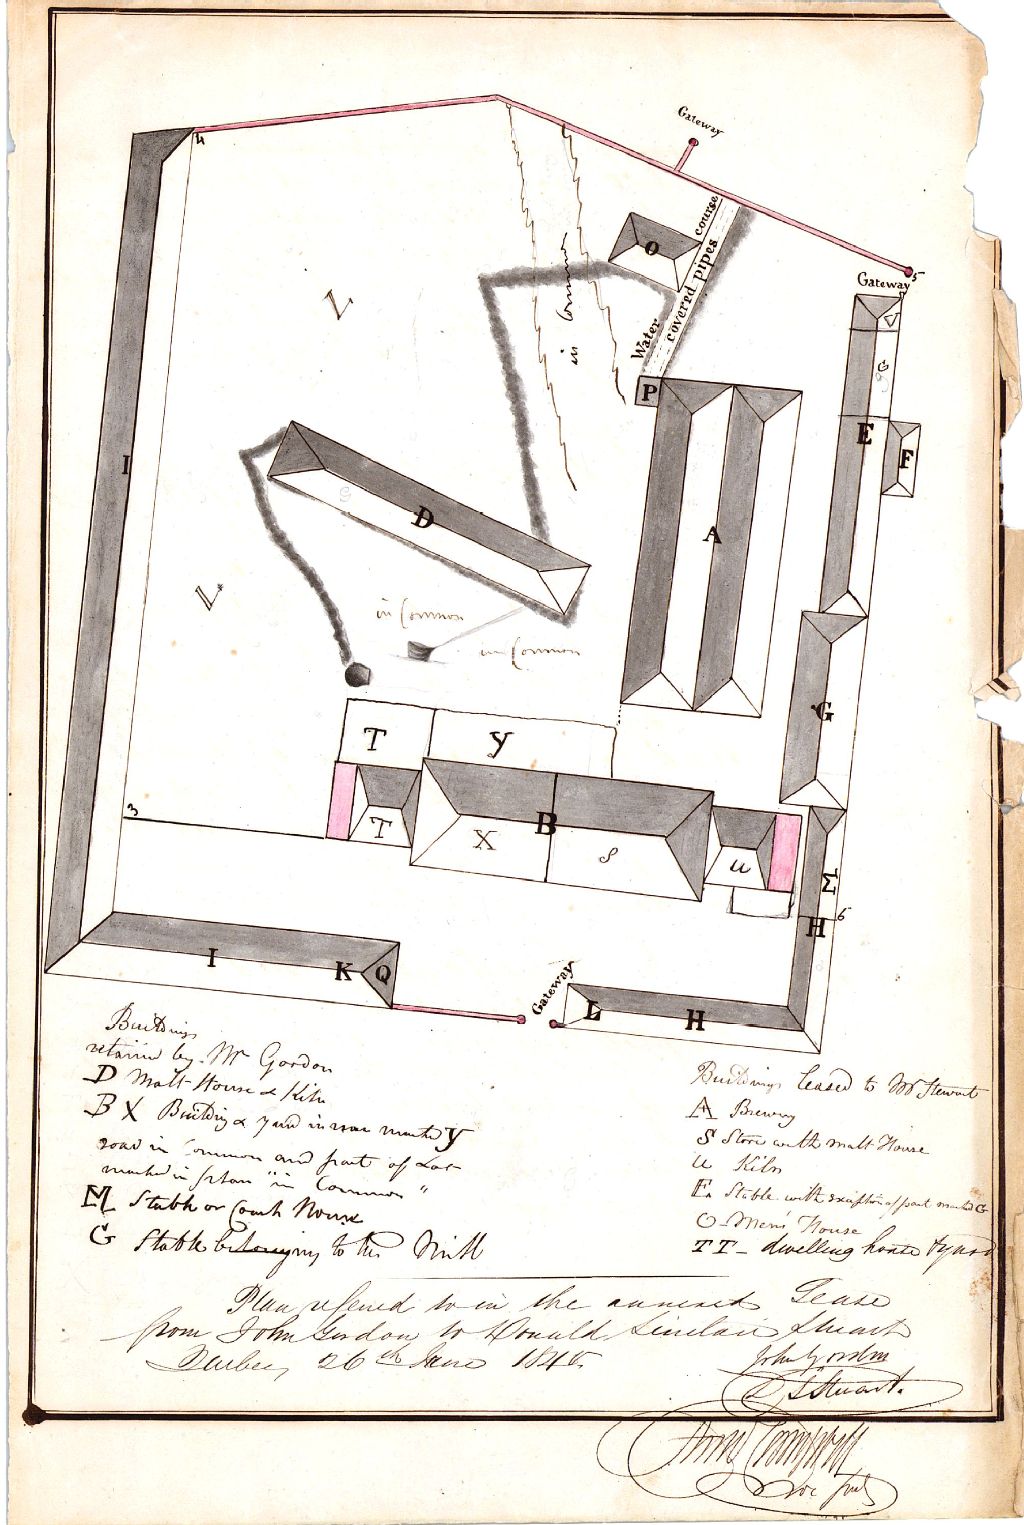 Gateway
4
Water course
covered pipes
O
5
Gateway
in Common
Z
P
G
E
F
I
D
A
Z
in Common
in Common
G
T
Y
3
T
X
B
S
U
M
6
H
I
K
Q
Gateway
L
H
Buildings
retained by Mr Gordon
D Malt House & Kiln
B X Building & yard in rear marked Y
road in Common and part of Lot
marked in plan "in Common"
M Stable or Coach House
G Stable belonging to the Mill
Buildings leased to Mr Stewart
A Brewery
S Store with malt House
U Kiln
E Stable with exception of part marked G
O Men's House
TT – dwelling house & yard
Plan referred to in the annexed Lease
from John Gordon to Donald Sinclair Stuart
Quebec, 26th June 1845
John Gordon
D S Stuart.
Campbell